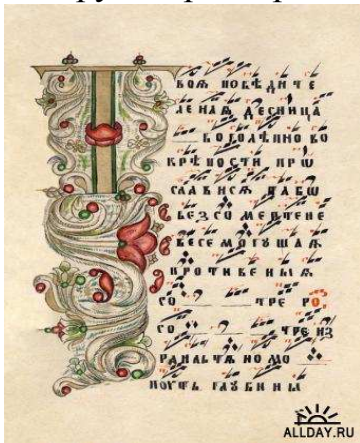 Т
ВОЯ ПОБѢДИЧЕ
ЛЕНАѦ ДЕСНИЦА
БОГОЛѢПНО ВО
КРѢПОСТИ ПРѠ
СЛАВИСѦ
БЕЗСОМЕРТЕНЕ
ВЕСЕМОГУЩАѦ
ПРОТИВЕНЫѦ
СО ТРЕ РО
СО ТРЕ ИЗ
РАИЛЬТѦНОМО
ПОУТЬ ГЛУБИНЫ
ALLDAY.RU